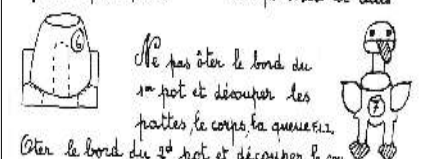 6
Ne pas ôter le bord du
1er pot et découper les
pattes, le corps, la queue F.1.2.
7
Oter le bord du 2d pot et découper le